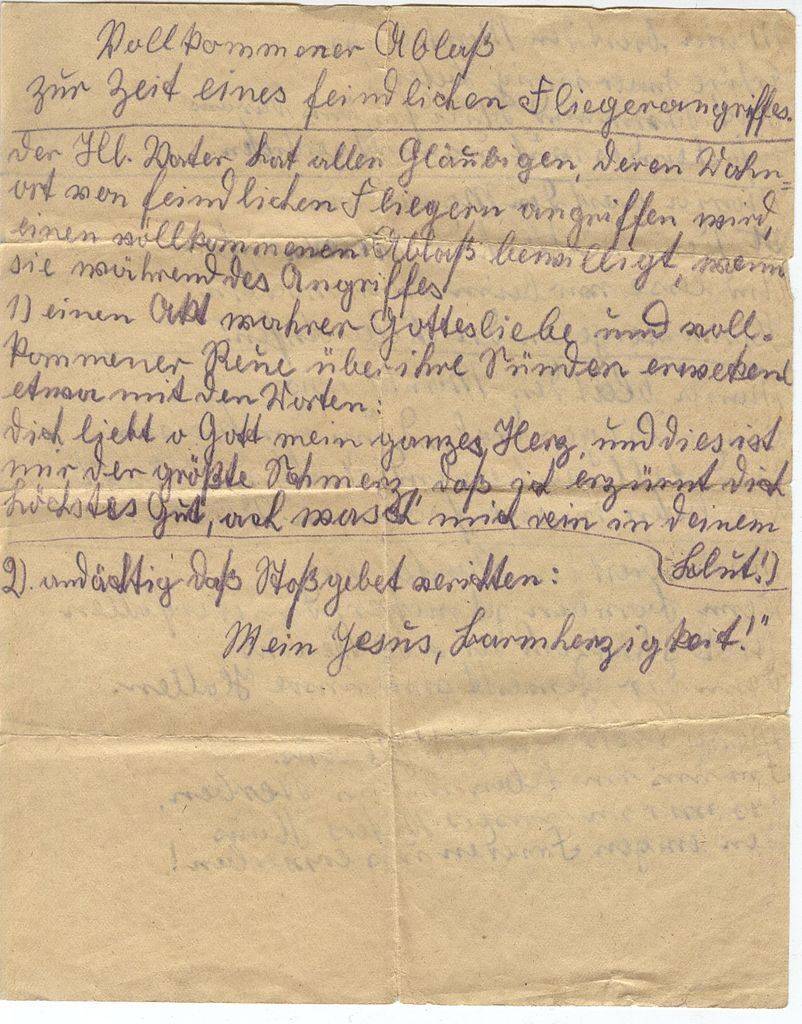 Vollkommener Ablaß
zur Zeit eines feindlichen Fliegerangriffes.
Der Hl. Vater hat allen Gläubigen, deren Wohn=
ort von feindlichen Fliegern angriffen wird,
einen vollkommenen Ablaß bewilligt, wenn
sie während des Angriffes
1) einen Akt wahrer Gottesliebe und voll-
kommener Reue über ihre Sünden erwecken
etwa mit den Worten:
Dich liebt o Gott mein ganzes Herz, und dies ist
mir der größte Schmerz, daß ich erzürnt dich
höchstes Gut, ach wasch' mich rein in deinem
Blut!)
2). andächtig daß Stoßgebet verichten:
Mein Jesus, Barmherzigkeit!"